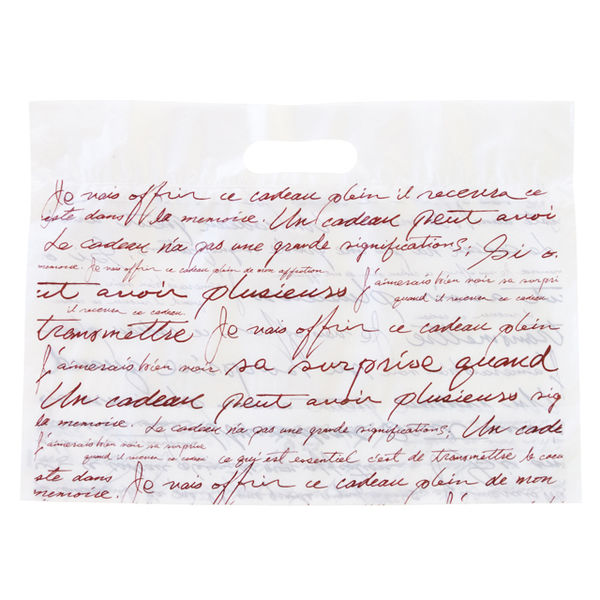 Je vais offrir ce cadeau plein il recevra ce
este dans la memoire. Un cadeau peut avoi
Le cadeau n'a pas une grande significations; Si
memoire. Je vais offrir ce cadeau plein de mon affection.
j'aimerais bien voir sa surpri
ut avoir plusieurs quand il recever ce cadeau
il recever ce cadeau.
transmettre Je vais offrir ce cadeau plein
j'aimerais bien voir sa surprise quand
Un cadeau peut avoir plusieurs sig
la memoire. Le cadeau n'a pas une grande significations; Un cade
j'aimerais bien voir sa surprise
quand il recever ce cadeau ce qui est essentiel c'est de transmettre le
ste dans Je vais offrir ce cadeau plein de mon
memoire.